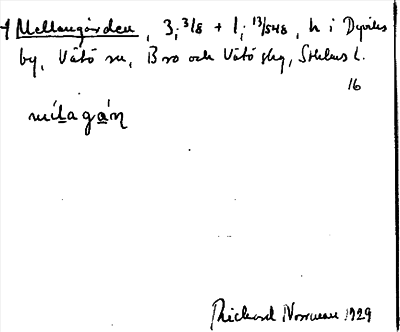 † Mellangården, 3; 3/8 + 1; 13/548, h i Dyviks
by, Vätö sn, Bro och Vätö skg, Sthlms l.
16
mílagán
Rickard Norrman 1929